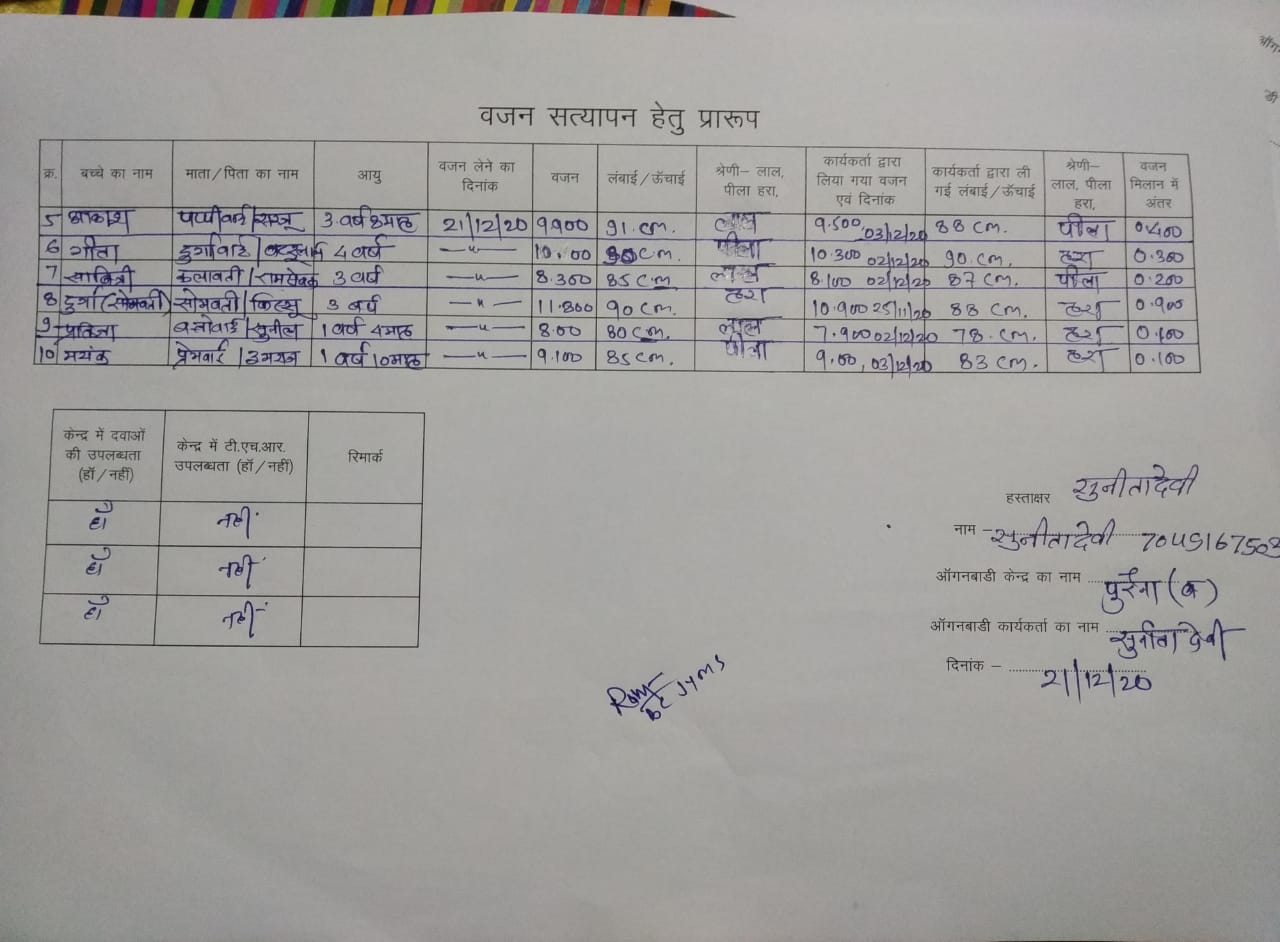 वजन सत्यापन हेतु प्रारूप
क्र. बच्चे का नाम माता/पिता का नाम आयु वजन लेने का दिनांक वजन लंबाई/ऊँचाई श्रेणी– लाल, पीला हरा, कार्यकर्ता द्वारा लिया गया वजन एवं दिनांक कार्यकर्ता द्वारा ली गई लंबाई/ऊँचाई श्रेणी– लाल, पीला हरा, वजन मिलान में अंतर
5 आकाश 3 वर्ष 8 माह 21/12/20 9.900 91 cm. लाल 9.500, 03/12/20 88 cm. पीला 0.400
6 गीता 4 वर्ष –"– 10.00 90 cm. पीला 10.300 02/12/20 90 cm. हरा 0.300
7 सावित्री कलावती/रामसेवक 3 वर्ष –"– 8.300 85 cm. लाल 8.100 02/12/20 87 cm. पीला 0.200
8 दुर्गा (सोमवती) सोमवती/ 3 वर्ष –"– 11.800 90 cm. हरा 10.900 25/11/20 88 cm. हरा 0.900
9 /सुनील 1 वर्ष 4 माह –"– 8.00 80 cm. लाल 7.900 02/12/20 78 cm. हरा 0.100
10 मयंक प्रेमबाई/ 1 वर्ष 10 माह –"– 9.100 85 cm. पीला 9.00, 03/12/20 83 cm. हरा 0.100
केन्द्र में दवाओं की उपलब्धता (हॉ/नहीं) केन्द्र में टी.एच.आर. उपलब्धता (हॉ/नहीं) रिमार्क
हाँ नही
हाँ नही
हाँ नही
हस्ताक्षर सुनीतादेवी
नाम – सुनीतादेवी
ऑगनबाडी केन्द्र का नाम पुरैना (ब)
ऑगनबाडी कार्यकर्ता का नाम सुनीता देवी
दिनांक – 21/12/20